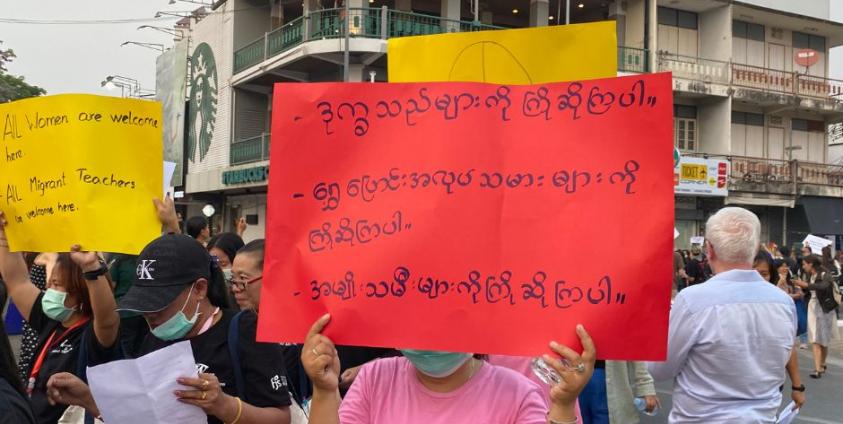 All Women are welcome
here.
All Migrant Teachers
are welcome here.
STARBUCKS
- ဒုက္ခသည်များကို ကြိုဆိုကြပါ။
- ရွှေ့ပြောင်းအလုပ်သမားများကို
ကြိုဆိုကြပါ။
- အမျိုးသမီးများကိုကြိုဆိုကြပါ။
TICKET
CK